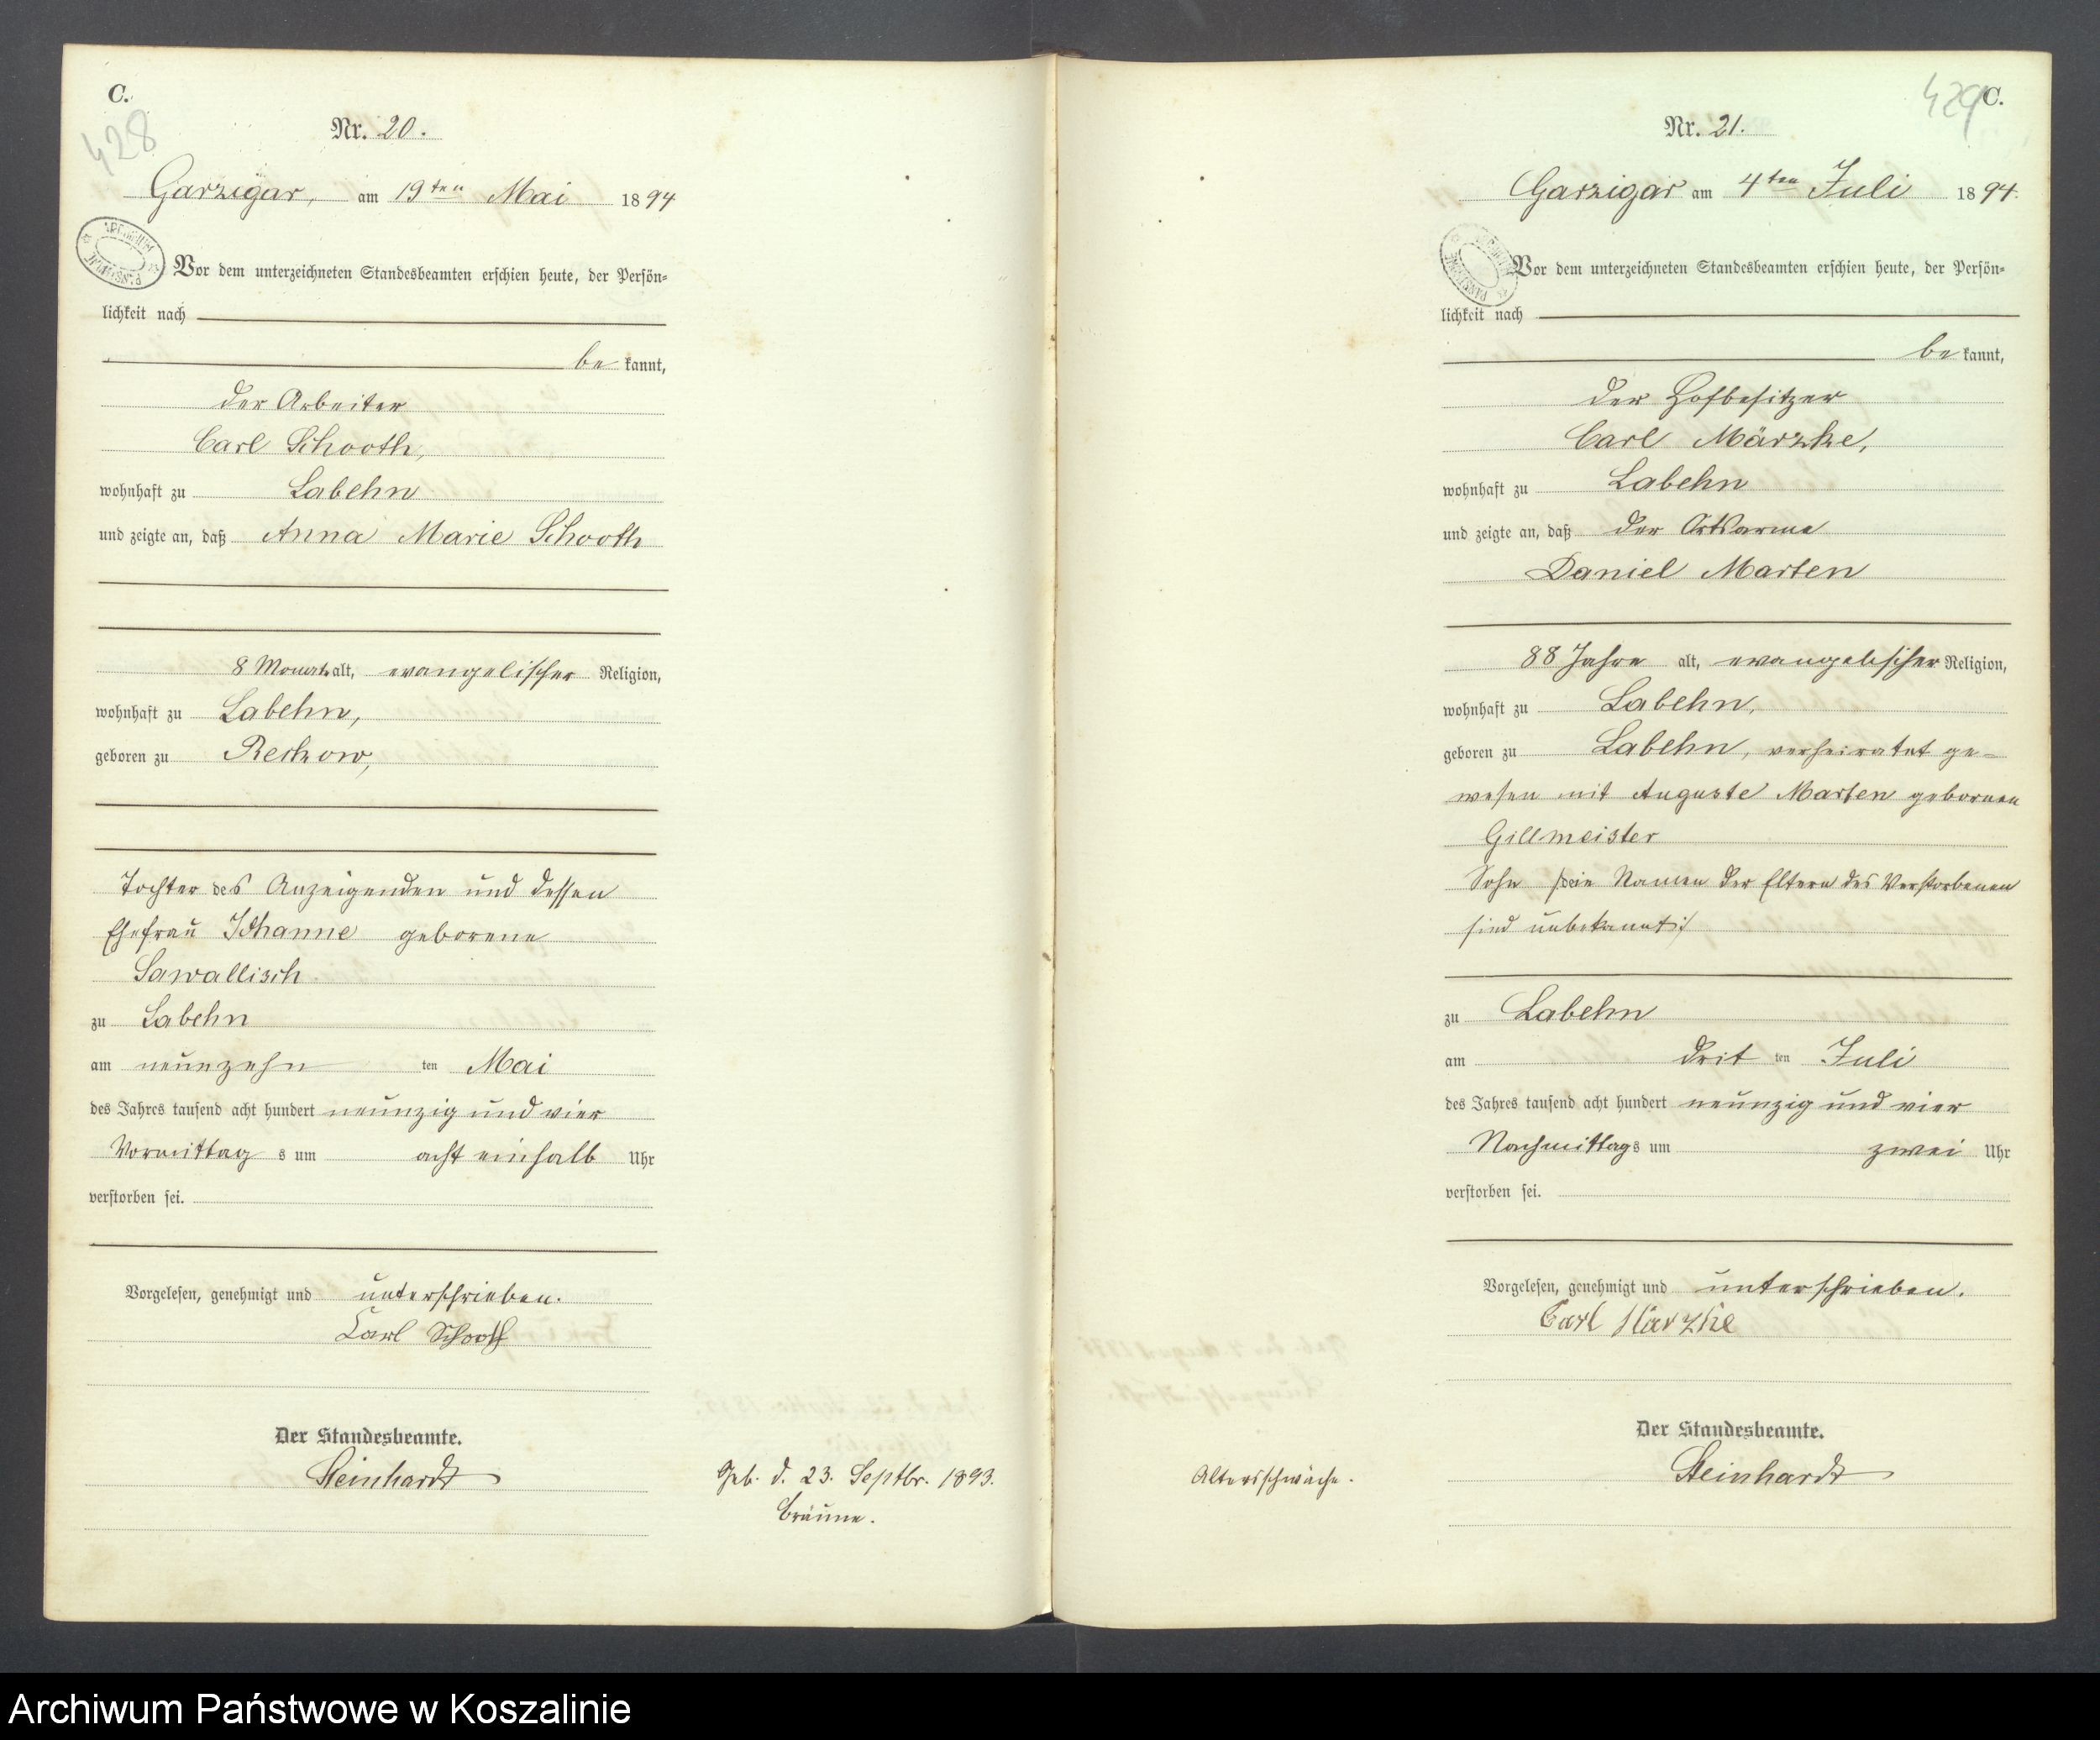 C.
428
Nr. 20.
Garzigar, am 19ten Mai 1894
Vor dem unterzeichneten Standesbeamten erschien heute, der Persön-
lichkeit nach
be kannt,
der Arbeiter
Carl Schooth,
wohnhaft zu Labehn
und zeigte an, daß Anna Marie Schooth
8 Monate alt, evangelischer Religion,
wohnhaft zu Labehn,
geboren zu Reckow,
Tochter des Anzeigenden und dessen
Ehefrau Johanne geborene
Sawallisch
zu Labehn
am neunzehn ten Mai
des Jahres tausend acht hundert neunzig und vier
Vormittag s um acht einhalb Uhr
verstorben sei.
Vorgelesen, genehmigt und unterschrieben.
Carl Schooth
Der Standesbeamte.
Steinhardt
Geb. d. 23. Septbr. 1893.
Bräune.
429
C.
Nr. 21.
Garzigar am 4ten Juli 1894.
Vor dem unterzeichneten Standesbeamten erschien heute, der Persön-
lichkeit nach
be kannt,
der Hofbesitzer
Carl Märzke,
wohnhaft zu Labehn
und zeigte an, daß der Ortsarme
Daniel Marten
88 Jahre alt, evangelischer Religion,
wohnhaft zu Labehn,
geboren zu Labehn, verheiratet ge-
wesen mit Auguste Marten gebornen
Gillmeister
Sohn /:die Namen der Eltern des Verstorbenen
sind unbekannt:/
zu Labehn
am drit ten Juli
des Jahres tausend acht hundert neunzig und vier
Nachmittags um zwei Uhr
verstorben sei.
Vorgelesen, genehmigt und unterschrieben.
Carl Märzke
Der Standesbeamte.
Steinhardt
Altersschwäche.
Archiwum Państwowe w Koszalinie